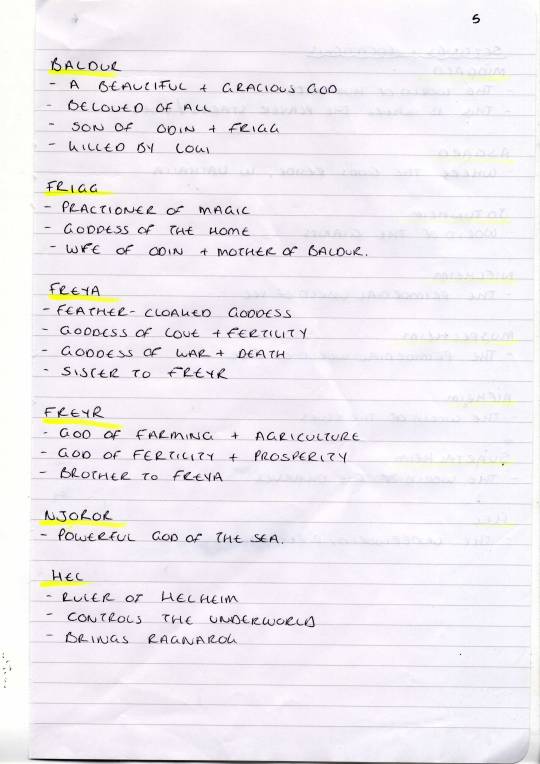 5
BALDUR
- A BEAUTIFUL + GRACIOUS GOD
- BELOVED OF ALL
- SON OF ODIN + FRIGG
- KILLED BY LOKI
FRIGG
- PRACTIONER OF MAGIC
- GODDESS OF THE HOME
- WIFE OF ODIN + MOTHER OF BALDUR.
FREYA
- FEATHER-CLOAKED GODDESS
- GODDESS OF LOVE + FERTILITY
- GODDESS OF WAR + DEATH
- SISTER TO FREYR
FREYR
- GOD OF FARMING + AGRICULTURE
- GOD OF FERTILITY + PROSPERITY
- BROTHER TO FREYA
NJOROR
- POWERFUL GOD OF THE SEA.
HEL
- RULER OF HELHEIM
- CONTROLS THE UNDERWORLD
- BRINGS RAGNAROK